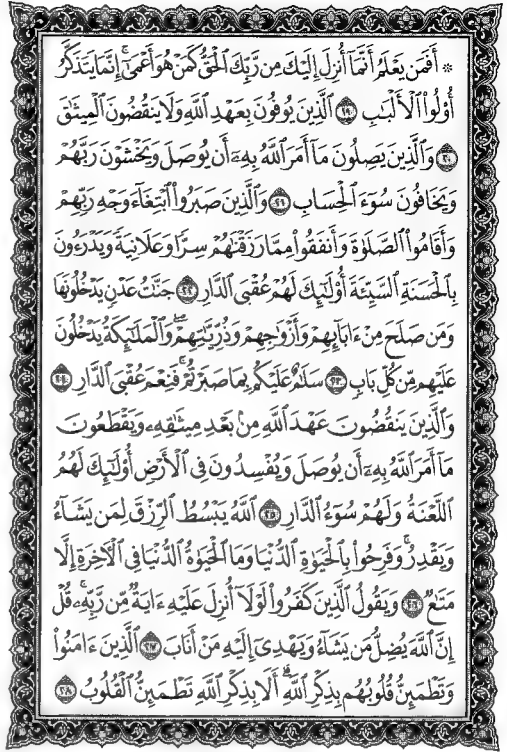 ۞ أَفَمَن يَعْلَمُ أَنَّمَآ أُنزِلَ إِلَيْكَ مِن رَّبِّكَ ٱلْحَقُّ كَمَنْ هُوَ أَعْمَىٰٓ ۚ إِنَّمَا يَتَذَكَّرُ
أُو۟لُوا۟ ٱلْأَلْبَـٰبِ ١٩ ٱلَّذِينَ يُوفُونَ بِعَهْدِ ٱللَّهِ وَلَا يَنقُضُونَ ٱلْمِيثَـٰقَ
٢٠ وَٱلَّذِينَ يَصِلُونَ مَآ أَمَرَ ٱللَّهُ بِهِۦٓ أَن يُوصَلَ وَيَخْشَوْنَ رَبَّهُمْ
وَيَخَافُونَ سُوٓءَ ٱلْحِسَابِ ٢١ وَٱلَّذِينَ صَبَرُوا۟ ٱبْتِغَآءَ وَجْهِ رَبِّهِمْ
وَأَقَامُوا۟ ٱلصَّلَوٰةَ وَأَنفَقُوا۟ مِمَّا رَزَقْنَـٰهُمْ سِرًّا وَعَلَانِيَةً وَيَدْرَءُونَ
بِٱلْحَسَنَةِ ٱلسَّيِّئَةَ أُو۟لَـٰٓئِكَ لَهُمْ عُقْبَى ٱلدَّارِ ٢٢ جَنَّـٰتُ عَدْنٍ يَدْخُلُونَهَا
وَمَن صَلَحَ مِنْ ءَابَآئِهِمْ وَأَزْوَٰجِهِمْ وَذُرِّيَّـٰتِهِمْ ۖ وَٱلْمَلَـٰٓئِكَةُ يَدْخُلُونَ
عَلَيْهِم مِّن كُلِّ بَابٍ ٢٣ سَلَـٰمٌ عَلَيْكُم بِمَا صَبَرْتُمْ ۚ فَنِعْمَ عُقْبَى ٱلدَّارِ ٢٤
وَٱلَّذِينَ يَنقُضُونَ عَهْدَ ٱللَّهِ مِنۢ بَعْدِ مِيثَـٰقِهِۦ وَيَقْطَعُونَ
مَآ أَمَرَ ٱللَّهُ بِهِۦٓ أَن يُوصَلَ وَيُفْسِدُونَ فِى ٱلْأَرْضِ أُو۟لَـٰٓئِكَ لَهُمُ
ٱللَّعْنَةُ وَلَهُمْ سُوٓءُ ٱلدَّارِ ٢٥ ٱللَّهُ يَبْسُطُ ٱلرِّزْقَ لِمَن يَشَآءُ
وَيَقْدِرُ ۚ وَفَرِحُوا۟ بِٱلْحَيَوٰةِ ٱلدُّنْيَا وَمَا ٱلْحَيَوٰةُ ٱلدُّنْيَا فِى ٱلْـَٔاخِرَةِ إِلَّا
مَتَـٰعٌ ٢٦ وَيَقُولُ ٱلَّذِينَ كَفَرُوا۟ لَوْلَآ أُنزِلَ عَلَيْهِ ءَايَةٌ مِّن رَّبِّهِۦ ۗ قُلْ
إِنَّ ٱللَّهَ يُضِلُّ مَن يَشَآءُ وَيَهْدِىٓ إِلَيْهِ مَنْ أَنَابَ ٢٧ ٱلَّذِينَ ءَامَنُوا۟
وَتَطْمَئِنُّ قُلُوبُهُم بِذِكْرِ ٱللَّهِ ۗ أَلَا بِذِكْرِ ٱللَّهِ تَطْمَئِنُّ ٱلْقُلُوبُ ٢٨